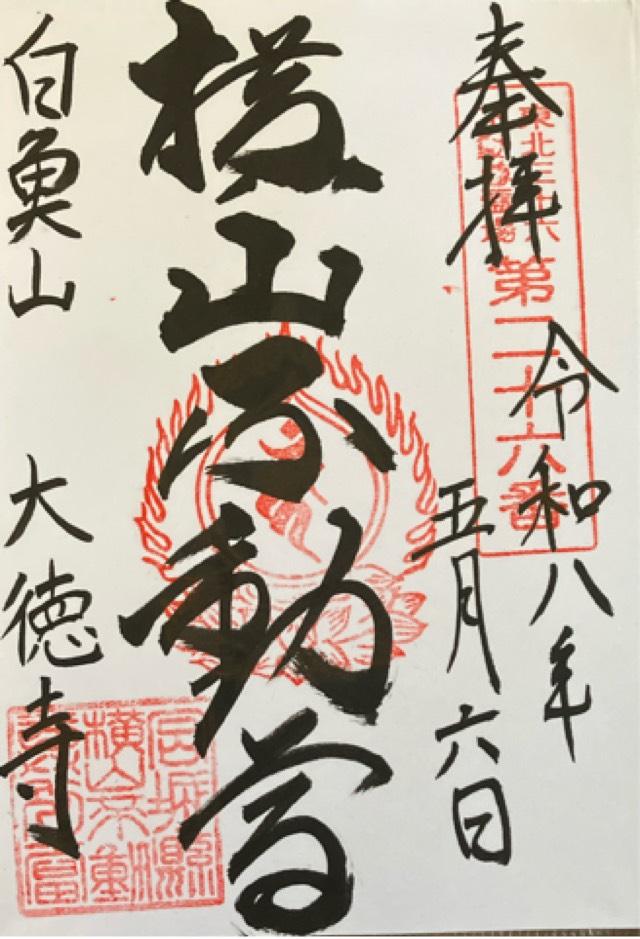 奉拝
東北三十六
不動尊霊場
第二十六番
令和八年
五月六日
横山不動尊
白魚山
大徳寺
宮城縣
横山不動